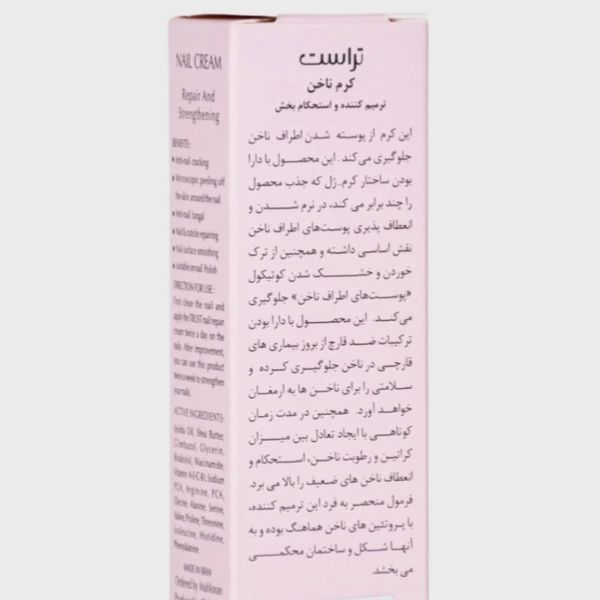 تراست
کرم ناخن
ترمیم کننده و استحکام بخش
این کرم از پوسته شدن اطراف ناخن
جلوگیری می کند. این محصول با دارا
بودن ساختار کرم_ژل که جذب محصول
را چند برابر می کند، در نرم شدن و
انعطاف پذیری پوست‌های اطراف ناخن
نقش اساسی داشته و همچنین از ترک
خوردن و خشک شدن کوتیکول
«پوست‌های اطراف ناخن» جلوگیری
می‌کند. این محصول با دارا بودن
ترکیبات ضد قارچ از بروز بیماری های
قارچی در ناخن جلوگیری کرده و
سلامتی را برای ناخن ها به ارمغان
خواهد آورد. همچنین در مدت زمان
کوتاهی با ایجاد تعادل بین میزان
کراتین و رطوبت ناخن، استحکام و
انعطاف ناخن های ضعیف را بالا می برد.
فرمول منحصر به فرد این ترمیم کننده،
با پروتئین های ناخن هماهنگ بوده و به
آنها شکل و ساختمان محکمی
می بخشد.
NAIL CREAM
Repair And
Strengthening
BENEFITS:
• Anti-nail cracking
• Microscopic peeling off
the skin around the nail
• Anti-nail fungal
• Nail & cuticle repairing
• Nail surface smoothing
• suitable on nail Polish
DIRECTION FOR USE:
First clean the nail and
apply the TRUST nail repair
cream twice a day on the
nails. After improvement,
you can use this product
twice a week to strengthen
your nails.
ACTIVE INGREDIENTS:
Jojoba Oil, Shea Butter,
Climbazol, Glycerin,
Bisabolol, Niacinamide,
Vitamin A-E-C-B5, Sodium
PCA, Arginine, PCA,
Glycine, Alanine, Serine,
Valine, Proline, Threonine,
Isoleucine, Histidine,
Phenylalanine
MADE IN IRAN
Ordered by